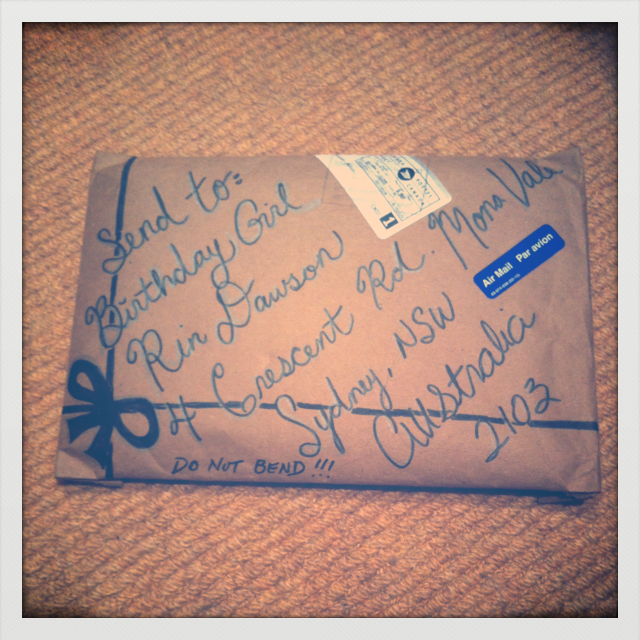 Send to:
Birthday Girl
Rin Dawson
4 Crescent Rd. Mona Vale
Sydney, NSW
Australia
2103
DO NOT BEND!!!
Air Mail Par avion